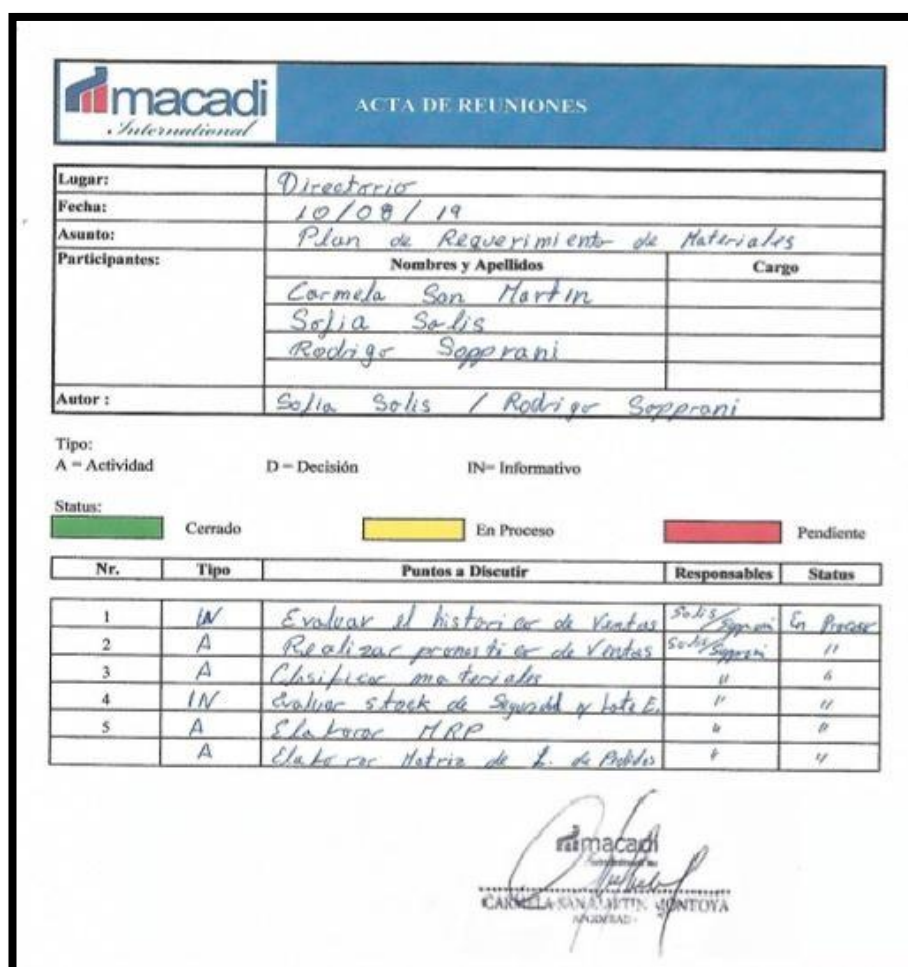 macadi
International
ACTA DE REUNIONES
Lugar: Directorio
Fecha: 10/08/19
Asunto: Plan de Requerimiento de Materiales
Participantes: Nombres y Apellidos Cargo
Carmela San Martin
Sofia Solis
Rodrigo Sopprani
Autor : Sofia Solis / Rodrigo Sopprani
Tipo:
A = Actividad D = Decisión IN= Informativo
Status:
Cerrado En Proceso Pendiente
Nr. Tipo Puntos a Discutir Responsables Status
1 IN Evaluar el historico de Ventas Solis/Sopprani En Proceso
2 A Realizar pronostico de Ventas Solis/Sopprani "
3 A Clasificar materiales " "
4 IN Evaluar stock de Seguridad y Lote E. " "
5 A Elaborar MRP " "
A Elaborar Matriz de L. de Pedidos " "
macadi
CARMELA SAN MARTIN MONTOYA